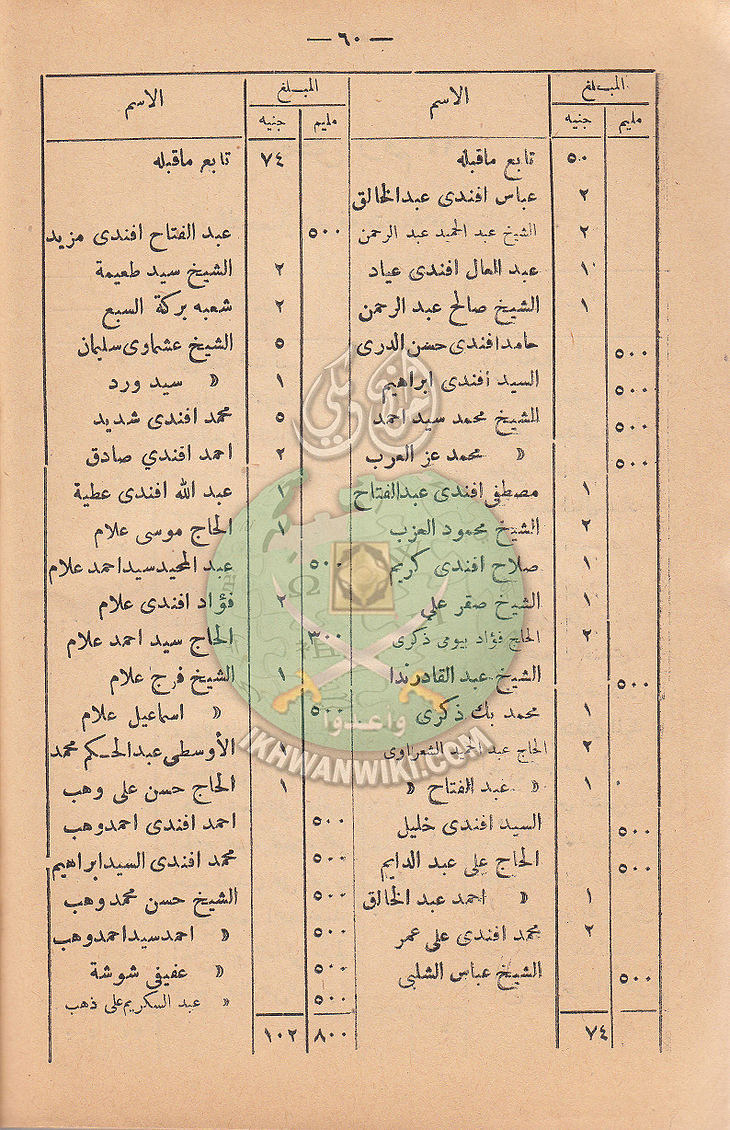 — ٦٠ —
المبلغ الاسم
مليم جنيه
٥٠ تابع ماقبله
٢ عباس افندى عبدالخالق
٢ الشيخ عبد الحميد عبد الرحمن
١٠ عبد العال افندى عياد
١ الشيخ صالح عبد الرحمن
٥٠٠ حامد افندى حسن الدرى
٥٠٠ السيد أفندى ابراهيم
٥٠٠ الشيخ محمد سيد احمد
٥٠٠ » محمد عز العرب
١ مصطفى افندى عبدالفتاح
٢ الشيخ محمود العزب
١ صلاح افندى كريم
١ الشيخ صقر علي
٢ الحاج فؤاد بيومى ذكرى
٥٠٠ الشيخ عبد القادر ندا
١ محمد بك ذكرى
٢ الحاج عبد الحميد الشعراوى
١ » عبد الفتاح »
٥٠٠ السيد افندى خليل
٥٠٠ الحاج على عبد الدايم
١ » احمد عبد الخالق
٢ محمد افندى على عمر
٥٠٠ الشيخ عباس الشلبى
٧٤
المبلغ الاسم
مليم جنيه
٧٤ تابع ماقبله
٥٠٠ عبد الفتاح افندى مزيد
٢ الشيخ سيد طعيمة
٢ شعبه بركة السبع
٥ الشيخ عشماوى سليمان
١ » سيد ورد
٥ محمد افندى شديد
٢ احمد افندي صادق
١ عبد الله افندى عطية
١ الحاج موسى علام
٥٠٠ عبد المجيد سيد احمد علام
٢ فؤاد افندى علام
٣٠٠ الحاج سيد احمد علام
١ الشيخ فرج علام
٥٠٠ » اسماعيل علام
١ الأوسطى عبد الحكم محمد
١ الحاج حسن على وهب
٥٠٠ احمد افندى احمد وهب
٥٠٠ محمد افندى السيد ابراهيم
٥٠٠ الشيخ حسن محمد وهب
٥٠٠ » احمد سيد احمد وهب
٥٠٠ » عفيفى شوشة
٥٠٠ » عبد السكريم على ذهب
٨٠٠ ١٠٢
الإخوان ويكي
وأعدوا
IKHWANWIKI.COM